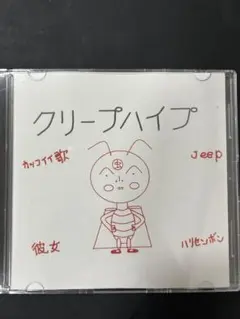 クリープハイプ
カッコイイ歌
Jeep
虫
彼女
ハリセンボン